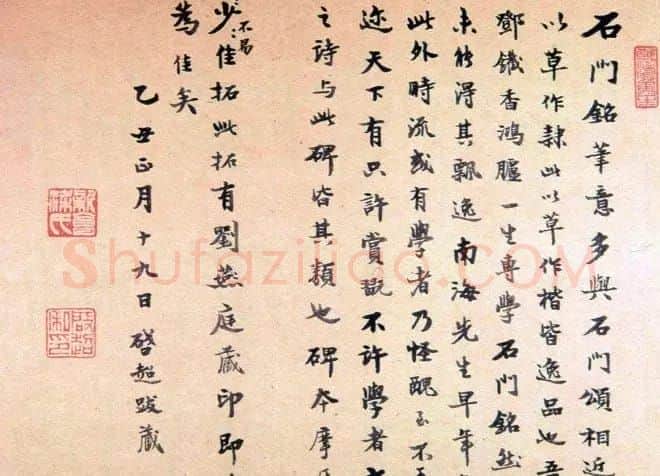 石门铭笔意多與石门頌相近
以草作隷此以草作楷皆逸品也吾
鄧鐵香鴻臚一生專學石门銘然
未能得其飄逸南海先生早年
此外時流或有學者乃怪醜至不
迹天下有只許賞翫不許學者
之詩与此碑皆其類也碑本摩
少不易佳拓此拓有劉燕庭藏印即
為佳矣
乙丑正月十九日啓超跋藏
Shufaziliao.COM